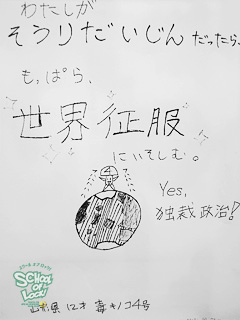 わたしが
そうりだいじんだったら、
もっぱら、
世界征服
にいそしむ。
Yes,
独裁政治!
SCHOOL
OF
LOCK!
県 12才 毒キノコ4号